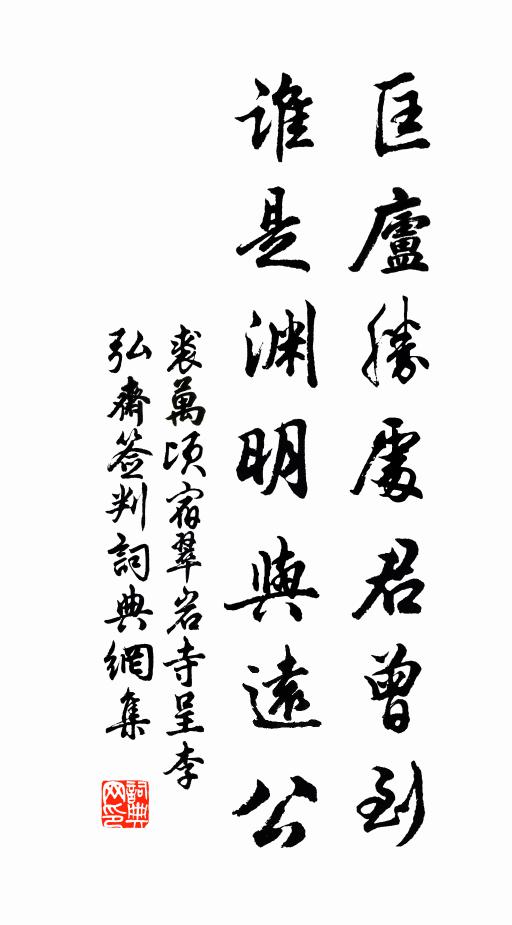 匡廬勝處君曾到
誰是淵明與遠公
裘萬頃宿翠岩寺呈李
弘齋簽判詞典網集
詞典网印